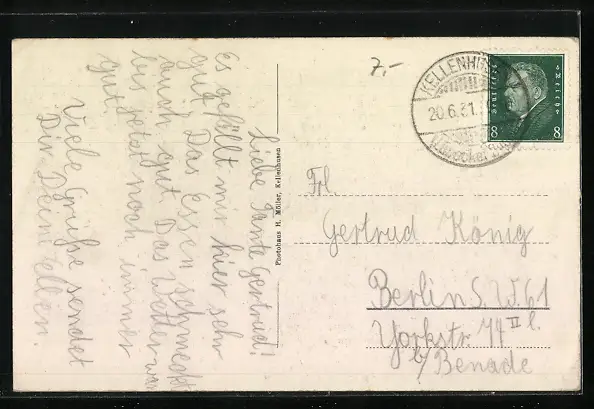 Liebe Tante Gertrud!
Es gefällt mir hier sehr
gut. Das Essen schmeckt
auch gut. Das Wetter war
bis jetzt noch immer
gut.
Viele Grüße sendet
Dir Deine Ellen.
Photohaus H. Möller, Kellenhusen
7.-
KELLENHUSEN
20.6.31.
Deutsches Reich
8 8
Frl.
Gertrud König
Berlin S.W.61
Yorkstr. 74 II l.
b/ Benade